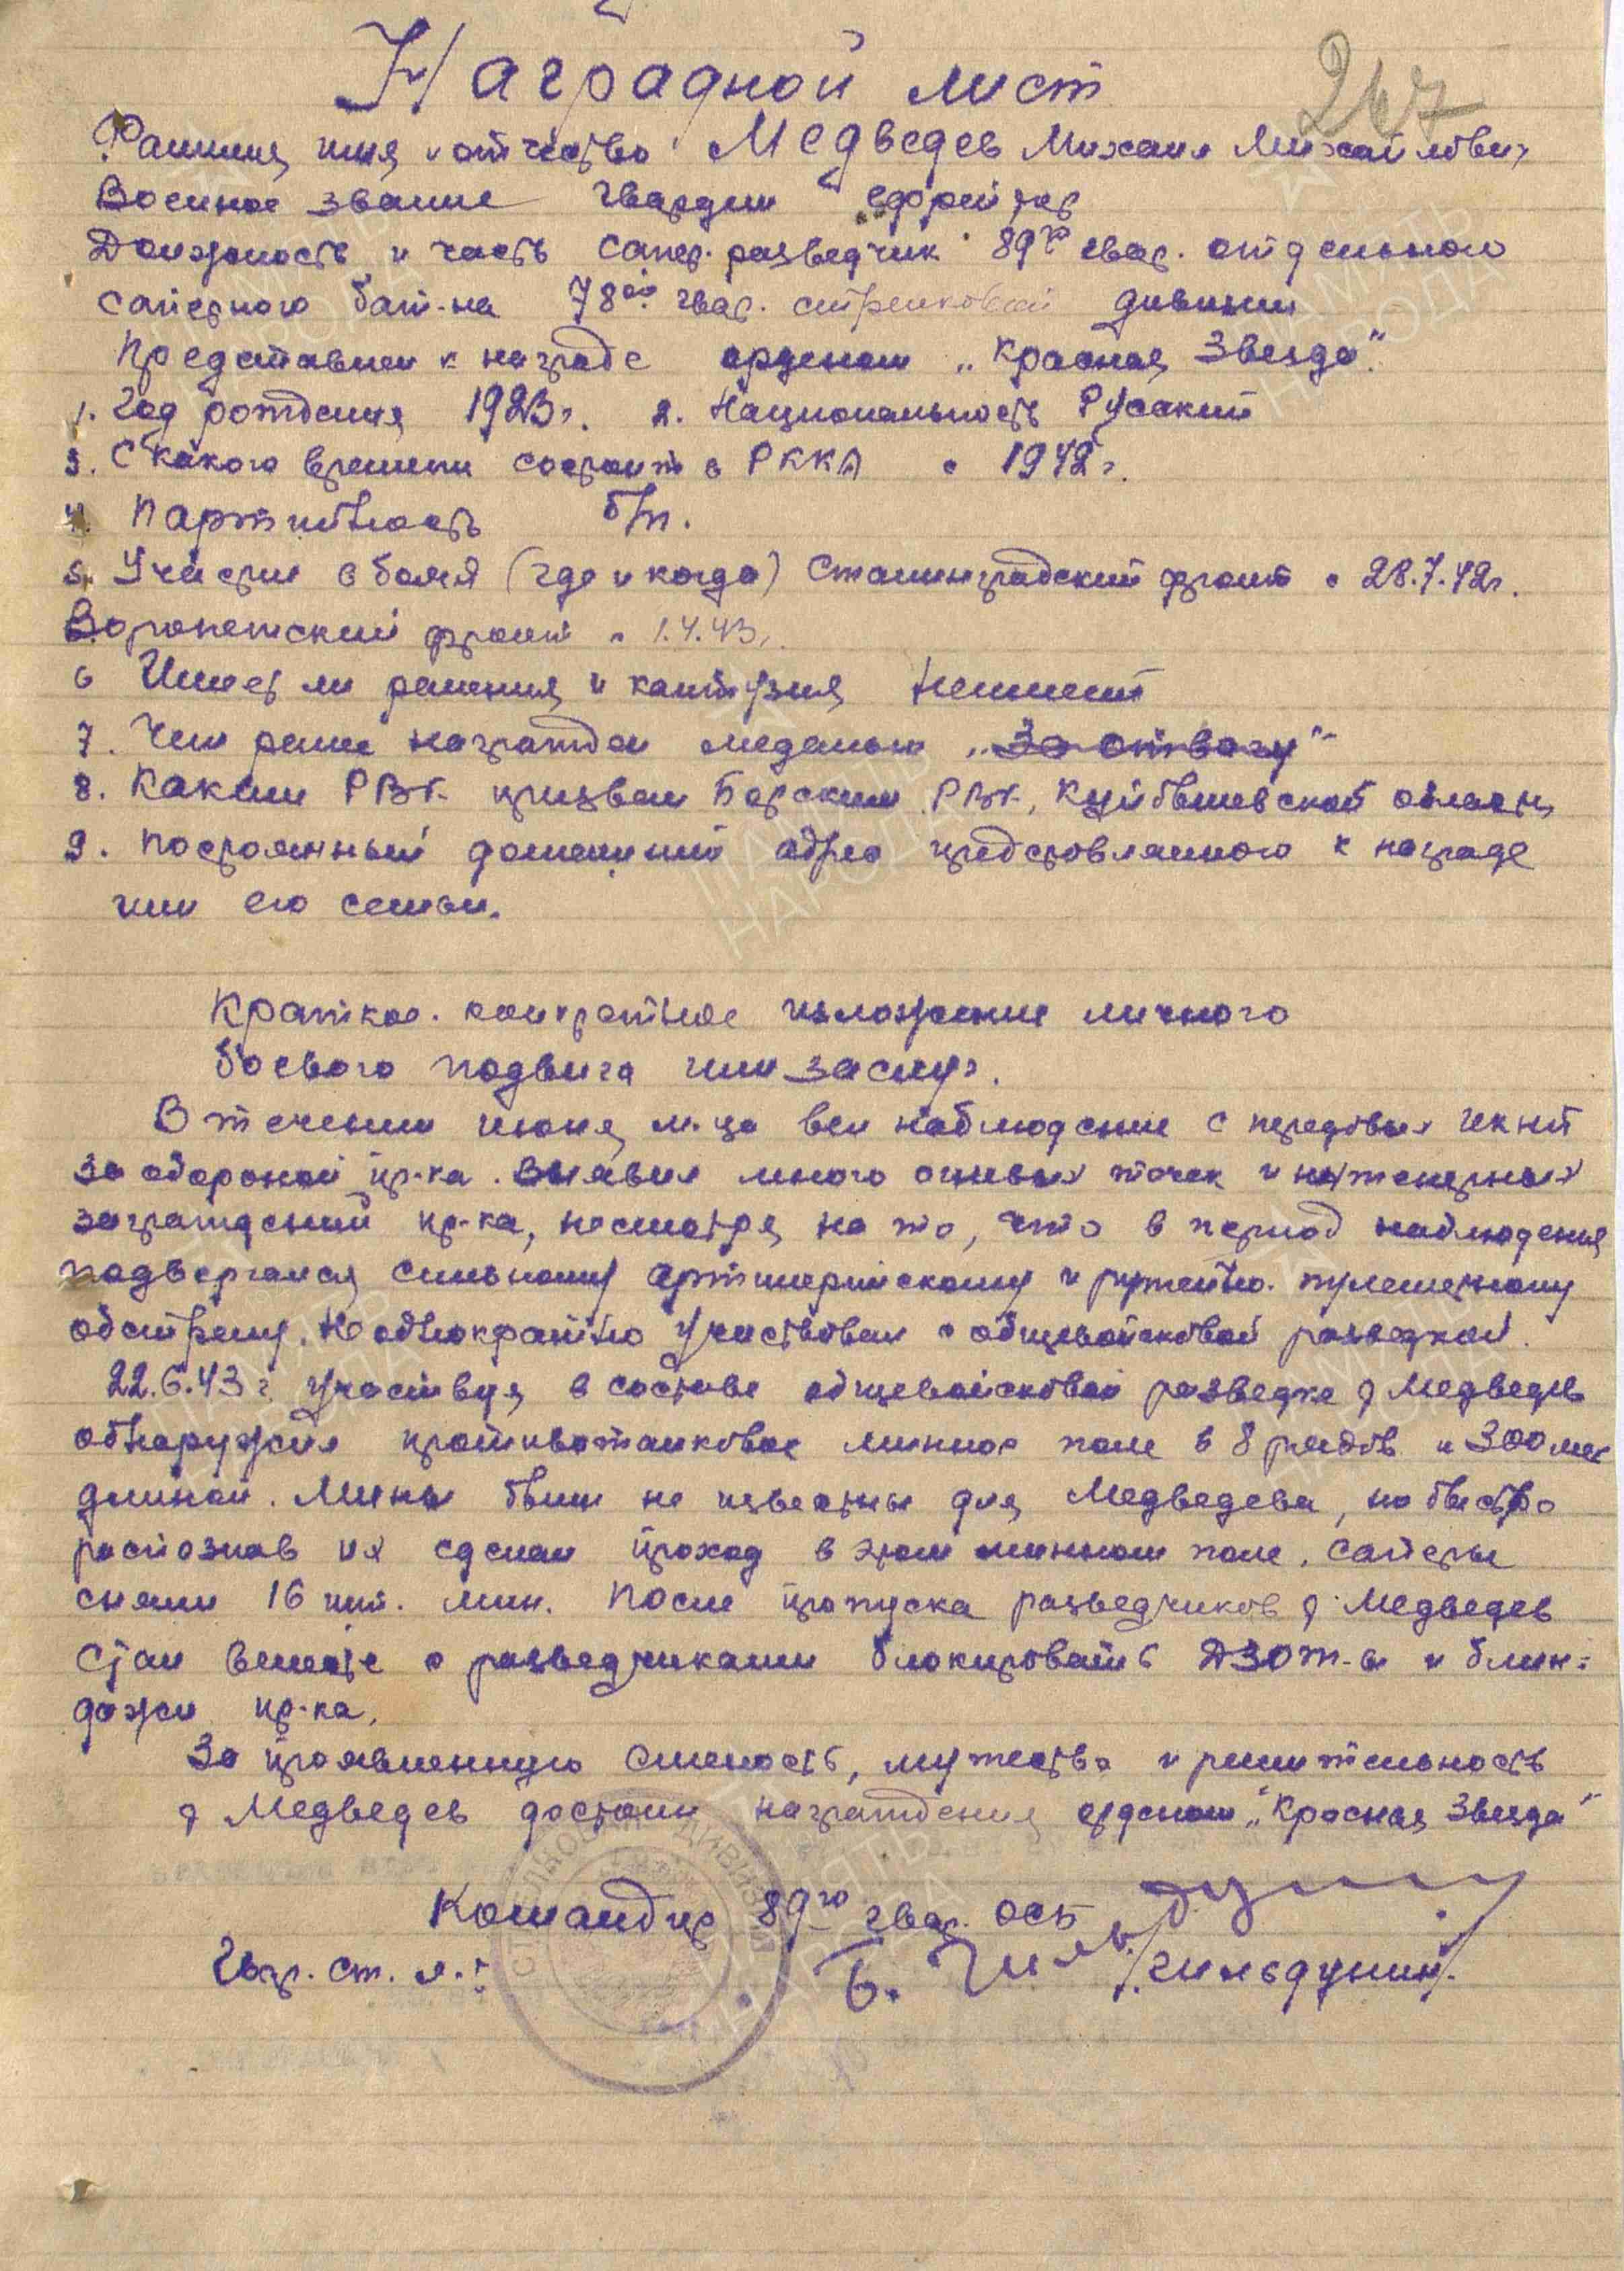 267
Наградной лист
Фамилия, имя и отчество Медведев Михаил Михайлович
Военное звание гвардии ефрейтор
Должность и часть сапер-разведчик 89го гвар. отдельного
саперного бат-на 78ой гвар. стрелковой дивизии
Представлен к награде орденом „Красная Звезда".
1. Год рождения 1923г. 2. Национальность Русский
3. С какого времени состоит в РККА с 1942г.
4. Партийность б/п.
5. Участие в боях (где и когда) Сталинградский фронт с 28.7.42г.
Воронежский фронт с 1.4.43г.
6 Имеет ли ранения и контузия не имеет
7. Чем ранее награжден медалью „За отвагу"
8. Каким РВК призван Борским РВК, Куйбышевской области
9. Постоянный домашний адрес представленного к награде
или его семьи.
Краткое конкретное изложение личного
боевого подвига или заслуг.
В течении июня м-ца вел наблюдение с передовых
за обороной пр-ка. Выявил много огневых точек и инженерных
заграждений пр-ка, несмотря на то, что в период наблюдения
подвергался сильному артилерийскому и ружейно-пулеметному
обстрелу. Неоднократно участвовал с общевойсковой разведкой.
22.6.43г. участвуя в составе общевойсковой разведке т Медведев
обнаружил противотанковое минное поле в 8 рядов и 300 мет
длиной. Мины были не известны для Медведева, но быстро
распознав их сделал проход в этом минном поле. Саперы
сняли 16 шт. мин. После пропуска разведчиков т. Медведев
стал вместе с разведчиками блокировать ДЗОТ-ы и блин-
дажи пр-ка.
За проявленную смелость, мужество и решительность
т Медведев достоин награждения орденом „Красная Звезда"
Командир 89го гвар. ОСБ
Гвар. ст. л-т Б. Гильдунин /Гильдунин/.
СТРЕЛКОВОЙ ДИВИЗИИ
ПАМЯТЬ НАРОДА